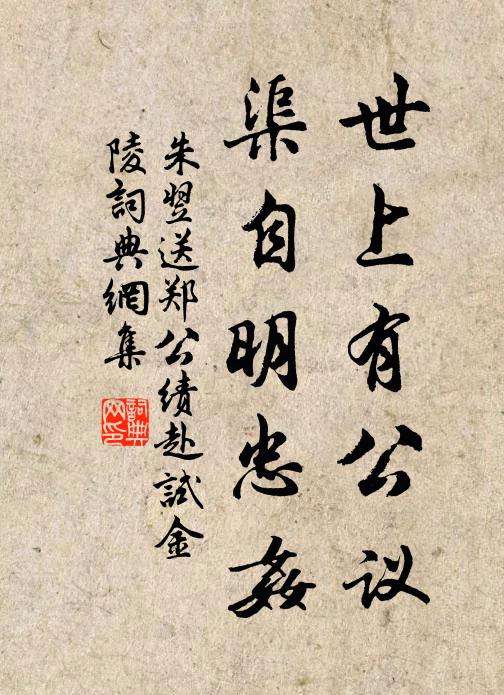 世上有公议
渠自明忠姦
朱翌送郑公績赴試金
陵詞典網集
詞典
网印